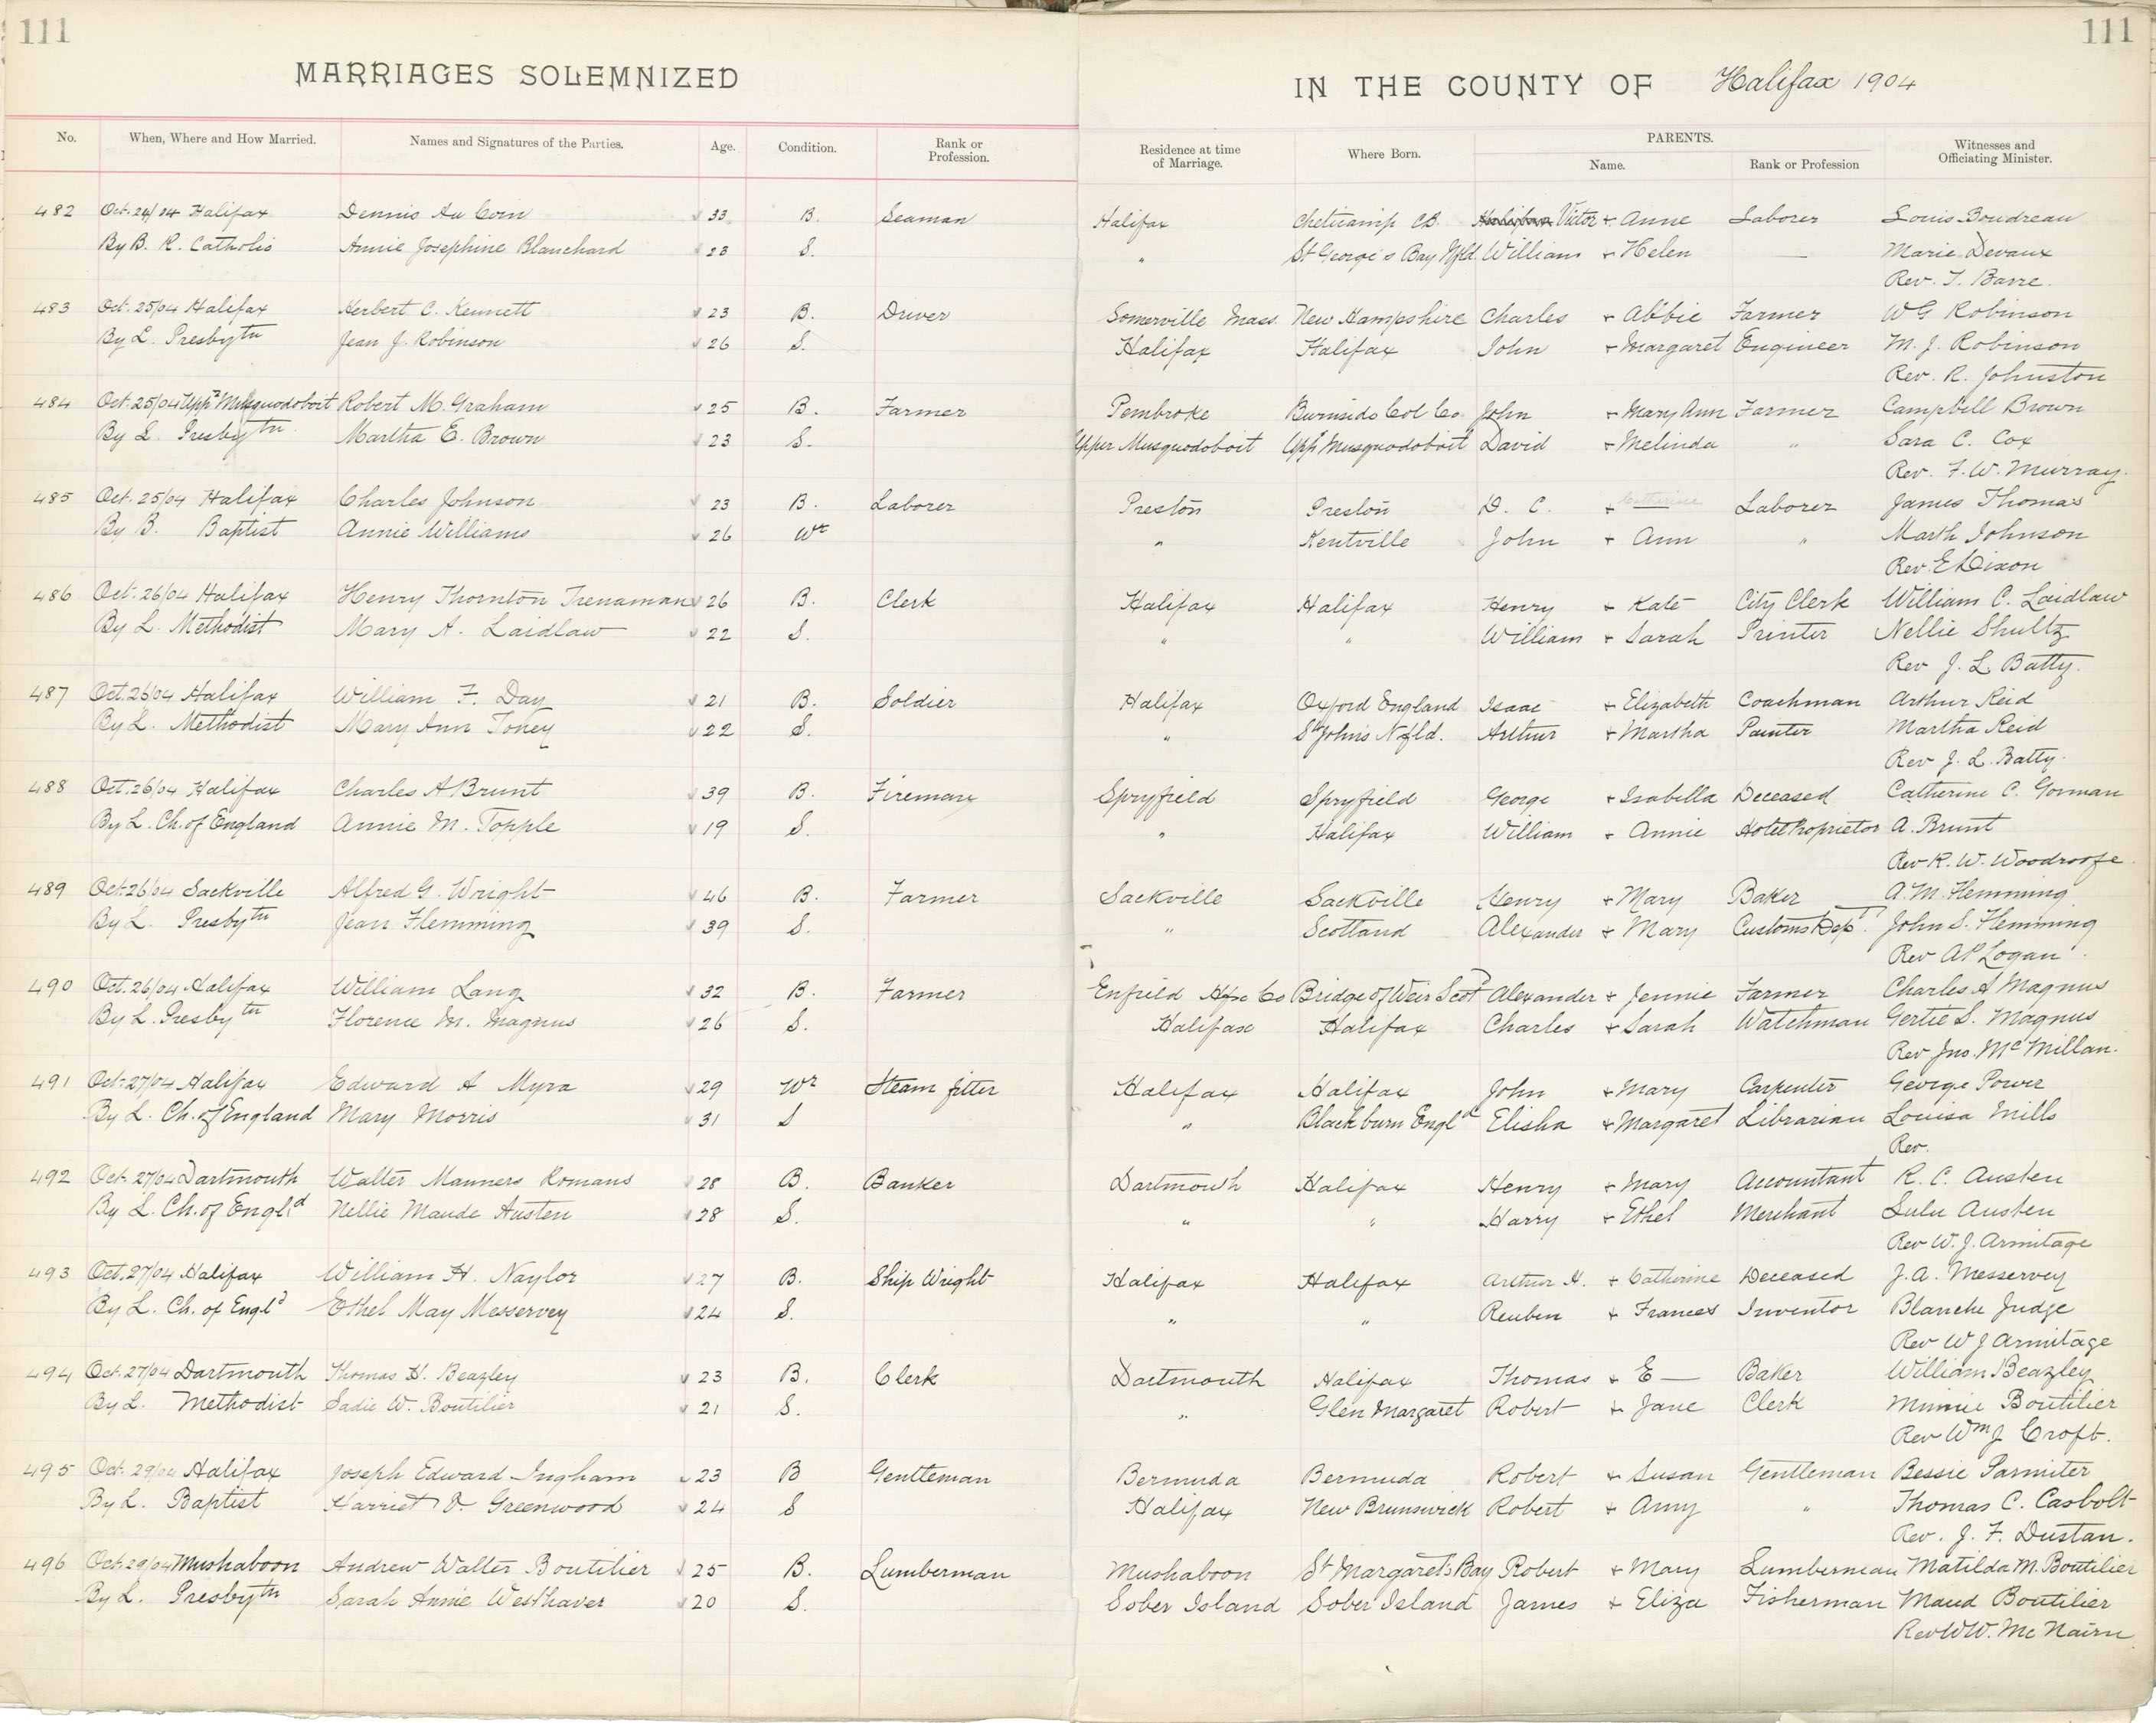 111
111
MARRIAGES SOLEMNIZED IN THE COUNTY OF Halifax 1904
No. When, Where and How Married. Names and Signatures of the Parties. Age. Condition. Rank or Profession. Residence at time of Marriage. Where Born. PARENTS. Name. Rank or Profession Witnesses and Officiating Minister.
482 Oct. 24/04 Halifax Dennis Au Coin 33 B. Seaman Halifax Cheticamp CB. Victor + Anne Laborer Louis Boudreau
By B. R. Catholic Annie Josephine Blanchard 23 S. " St George's Bay Nfld William + Helen — Marie Devaux
Rev. T. Barre.
483 Oct. 25/04 Halifax Herbert C. Kennett 23 B. Driver Somerville Mass. New Hampshire Charles + Abbie Farmer W G Robinson
By L. Presbytn Jean J. Robinson 26 S. Halifax Halifax John + Margaret Engineer M. J. Robinson
Rev. R. Johnston
484 Oct. 25/04 Uppr Musquodoboit Robert M. Graham 25 B. Farmer Pembroke Burnside Col Co. John + Mary Ann Farmer Campbell Brown
By L. Presbytn. Martha E. Brown 23 S. Upper Musquodoboit Uppr Musquodoboit David + Melinda " Sara C. Cox
Rev. F. W. Murray.
485 Oct. 25/04 Halifax Charles Johnson 23 B. Laborer Preston Preston D. C. + Catherine Laborer James Thomas
By B. Baptist Annie Williams 26 Wr " Kentville John + Ann " Marth Johnson
Rev. E Dixon
486 Oct. 26/04 Halifax Henry Thornton Trenaman 26 B. Clerk Halifax Halifax Henry + Kate City Clerk William C. Laidlaw
By L. Methodist Mary A. Laidlaw 22 S. " " William + Sarah Printer Nellie Shultz
Rev J. L. Batty.
487 Oct. 26/04 Halifax William F. Day 21 B. Soldier Halifax Oxford England Isaac + Elizabeth Coachman Arthur Reid
By L. Methodist Mary Ann Toney 22 S. " St John's Nfld. Arthur + Martha Painter Martha Reid
Rev J. L. Batty.
488 Oct. 26/04 Halifax Charles A Brunt 39 B. Fireman Spryfield Spryfield George + Isabella Deceased Catherine C. Gorman
By L. Ch. of England Annie M. Topple 19 S. " Halifax William + Annie Hotel Proprietor A. Brunt
Rev R. W. Woodroofe.
489 Oct. 26/04 Sackville Alfred G. Wright 46 B. Farmer Sackville Sackville Henry + Mary Baker A. M. Flemming
By L. Presbytn Jean Flemming 39 S. " Scotland Alexander + Mary Customs Dept. John S. Flemming
Rev A P Logan.
490 Oct. 26/04 Halifax William Lang 32 B. Farmer Enfield Hfx Co Bridge of Weir Scot Alexander + Jennie Farmer Charles A Magnus
By L. Presbytn Florence M. Magnus 26 S. Halifax Halifax Charles + Sarah Watchman Gertie S. Magnus
Rev Jno. McMillan.
491 Oct. 27/04 Halifax Edward A Myra 29 Wr Steam fitter Halifax Halifax John + Mary Carpenter George Power
By L. Ch. of England Mary Morris 31 S " Blackburn Engld Elisha + Margaret Librarian Louisa Mills
Rev.
492 Oct. 27/04 Dartmouth Walter Manners Romans 28 B. Banker Dartmouth Halifax Henry + Mary Accountant R. C. Austen
By L. Ch. of Engld Nellie Maude Austen 28 S. " " Harry + Ethel Merchant Lulu Austen
Rev W. J. Armitage
493 Oct. 27/04 Halifax William H. Naylor 27 B. Ship Wright Halifax Halifax Arthur H. + Catherine Deceased J. A. Messervey
By L. Ch. of Engld Ethel May Messervey 24 S. " " Reuben + Frances Inventor Blanche Judge
Rev W J Armitage
494 Oct. 27/04 Dartmouth Thomas H. Beazley 23 B. Clerk Dartmouth Halifax Thomas + E — Baker William Beazley
By L. Methodist Sadie W. Boutilier 21 S. " Glen Margaret Robert + Jane Clerk Minnie Boutilier
Rev Wm J Croft.
495 Oct. 29/04 Halifax Joseph Edward Ingham 23 B Gentleman Bermuda Bermuda Robert + Susan Gentleman Bessie Parmiter
By L. Baptist Harriet Greenwood 24 S Halifax New Brunswick Robert + Amy " Thomas C. Casbolt
Rev. J. F. Dustan.
496 Oct. 29/04 Mushaboon Andrew Walter Boutilier 25 B. Lumberman Mushaboon St Margaret's Bay Robert + Mary Lumberman Matilda M. Boutilier
By L. Presbytn Sarah Annie Westhaver 20 S. Sober Island Sober Island James + Eliza Fisherman Maud Boutilier
Rev W W. McNairn